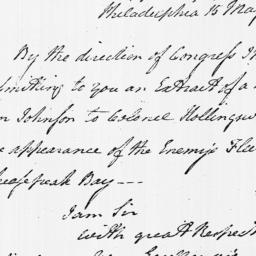 Philadelphia 15 May
By the direction of Congress I
to you an Extract of a
Johnson to Colonel Hollingsw
appearance of the Enemys Flee
Bay ---
I am Sir
with great Respect